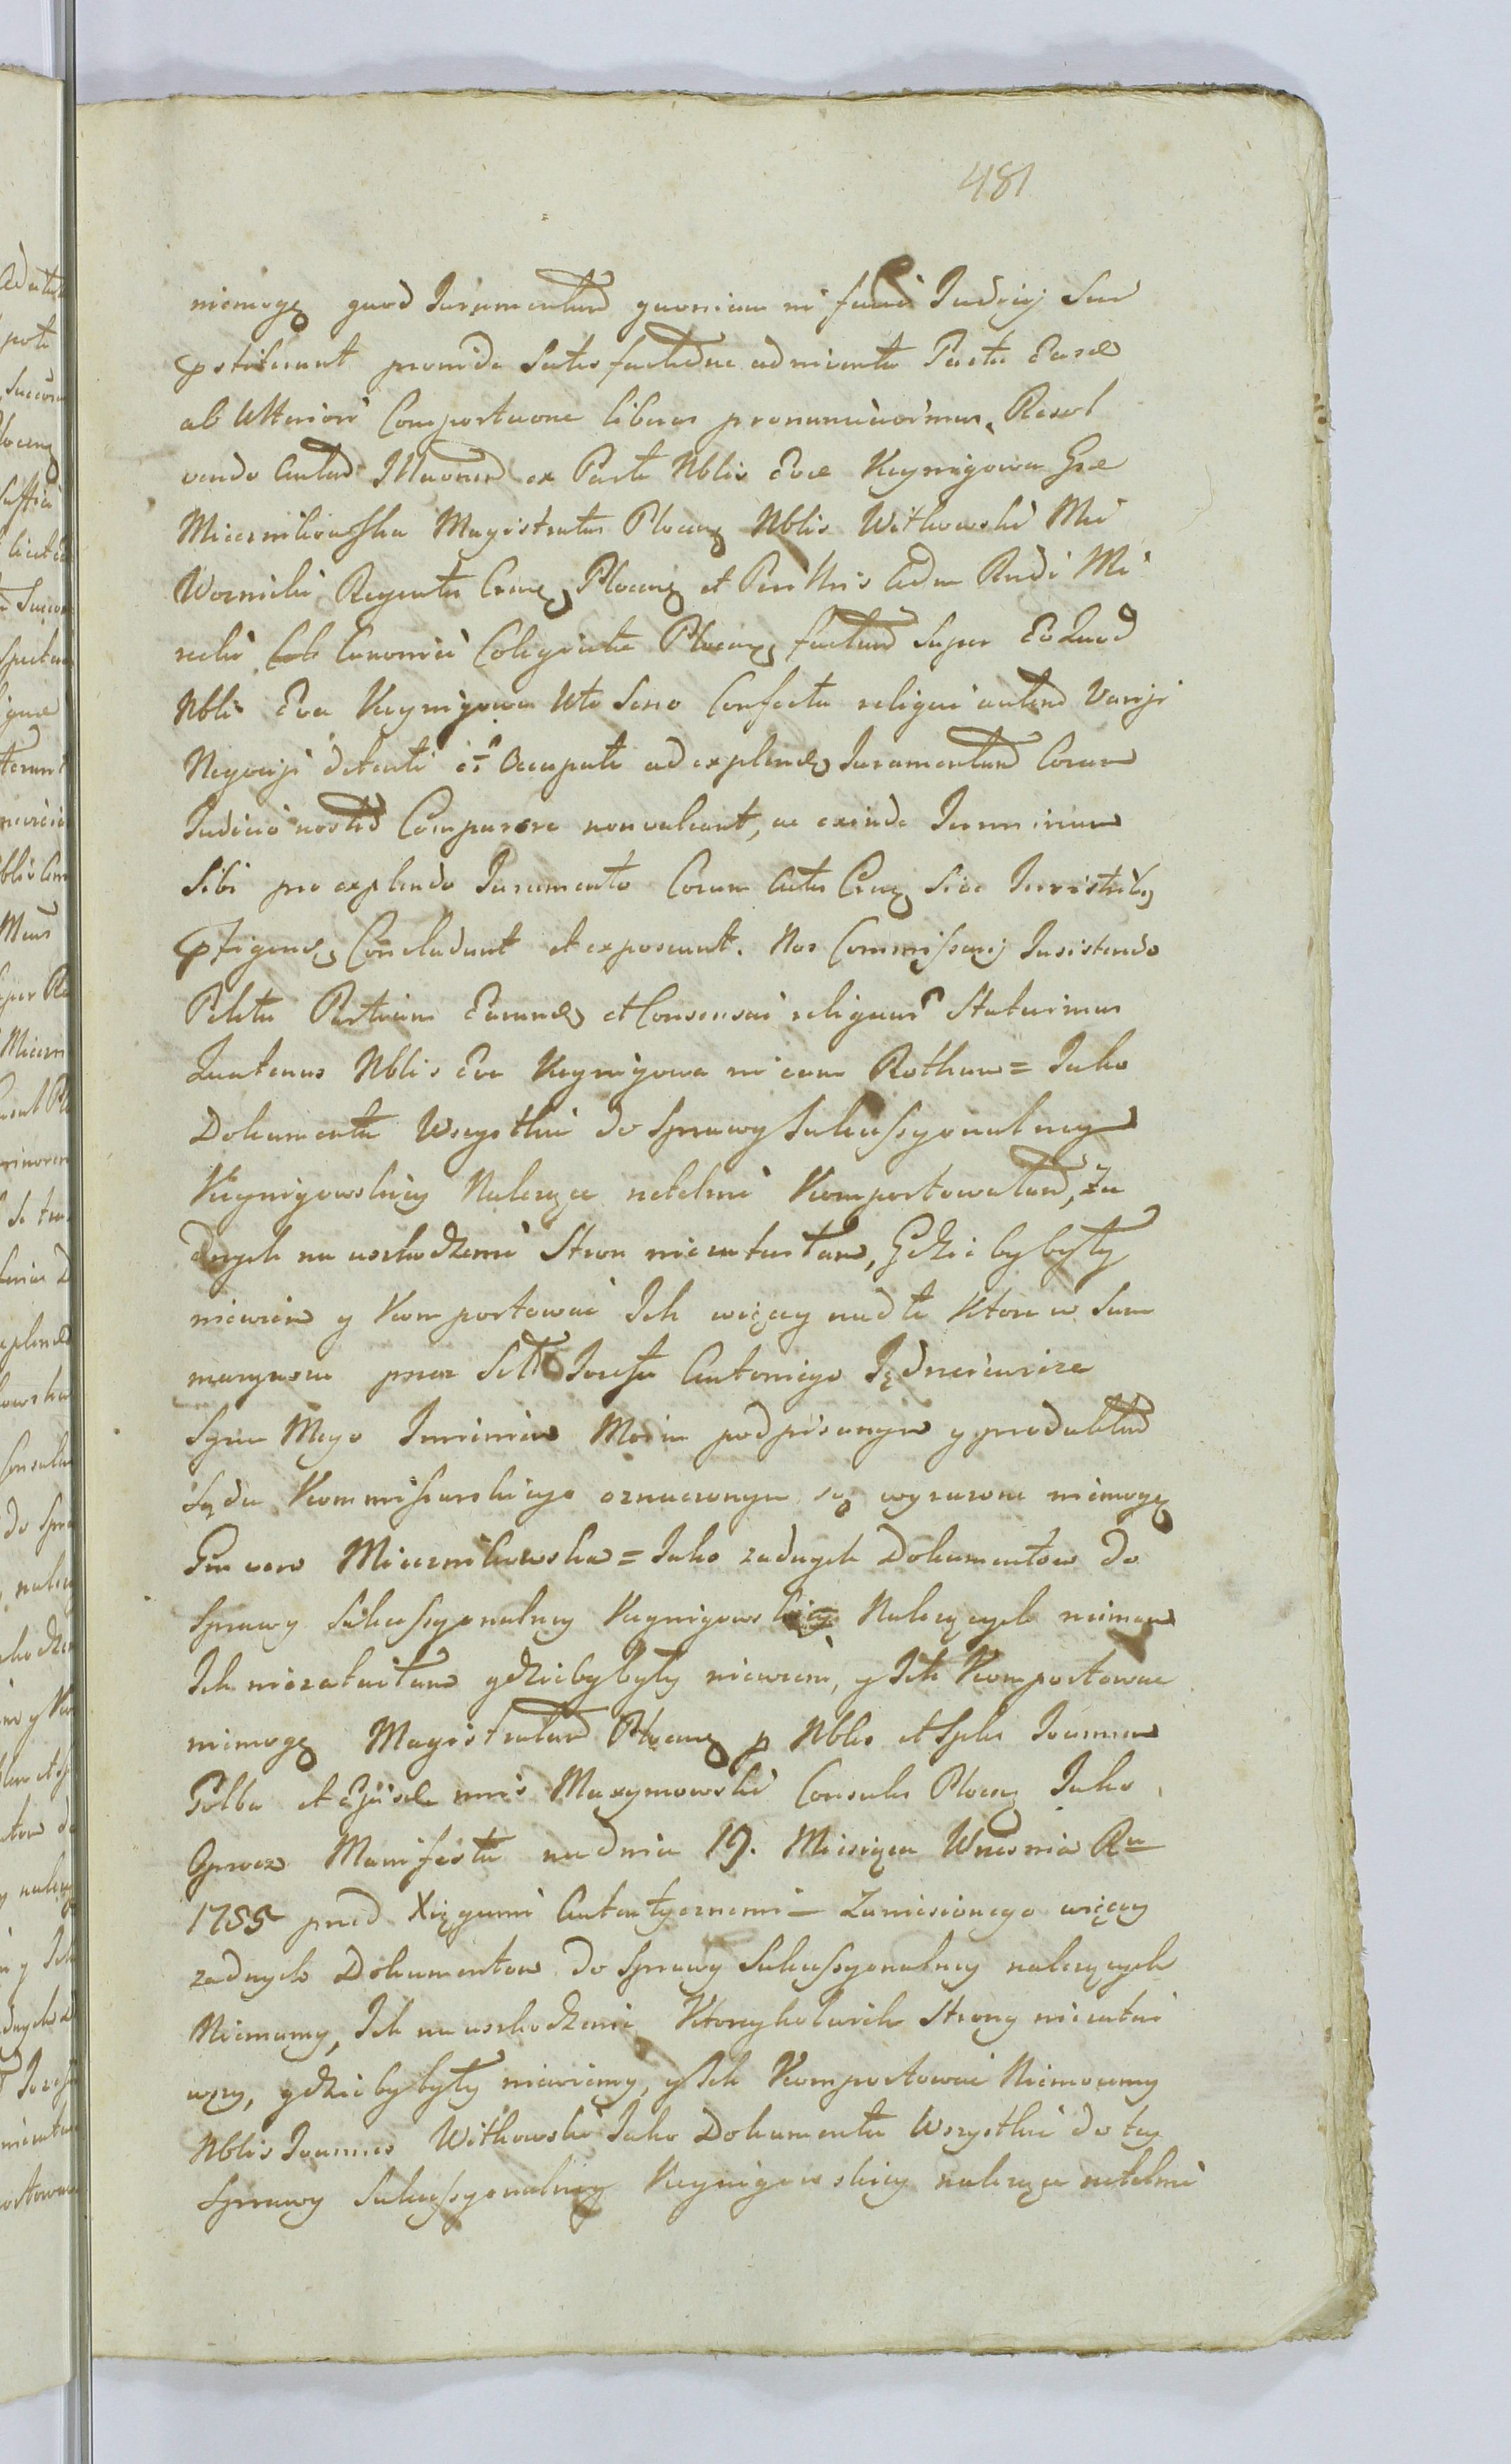 481
niemogę quod Juramentum quoniam in facie Judicij Sui
pstiterunt proinde Satisfactione admient Partes Easd
ab Ulteriori Comportaone liberas pronunciavimus. Resol
vendo autem Illaonem ex Parte Nblis Evæ Keynigowa Gsæ
Miecznikowska Magistratus Plocen Nblis Witkowski Mie
Woznicki Regentis Plocen et Per Illris Adm Rndi Mi
Canonici Colegiatæ Plocen factam Super Eo Quod
Nblis Eva Keynigowa Utᵉ Senio Confecta reliqui autem Varijs
Negocijs detenti et Occupati ad explend Juramentum Coram
Judicio nostro Comparere non valeant, ac exinde Terminum
Sibi pro explendo Juramento Coram Actis sive
pfigend Concludunt et exposcunt. Nos Commissarij Insistendo
Petitis Partium Earund et Consensui reliquar Statuimus
Quatenus Nblis Eva Keynigowa in eam Rotham = Jako
Dokumenta Wszystkie do Sprawy Sukcessyonalney
Keynigowskiey Nalezące retelnie Komportowałam, Za
dnych na uszkodzenie Stron niezataiłam, Gdzie by były
niewiem y Komportować Ich więcey nad te Ktore w Sum
maryuszu przez Józefa Antoniego Jędrzeiewicza
Syna Mego Imieniem Moim podpisanym y produktem
Sądu Kommissarskiego oznaczonym są wyrazone niemogę
Gsa vero Miecznikowska = Jako zadnych Dokumentow do
Sprawy Sukcessyonalney Keynigowskiey Nalezących niemam
Ich niezataiłam gdzieby były niewiem, y Ich Komportowac
niemogę Magistratus Plocen p Nbles et Spbles Joannem
Gołba et Maxymowski Consules Plocen Jako
Oprocz Manifestu na dniu 19. Miesiąca Wrzesnia Rū
1755 przed Xięgami Autentycznemi = Zaniesionego więcey
zadnych Dokumentow do Sprawy Sukcessyonalney nalezących
Niemamy, Ich na uszkodzenie Ktoreykolwiek Strony niezatai
wszy, gdzieby były niewiemy, y Ich Komportować Niemozemy
Nblis Joannes Witkowski Jako Dokumenta Wszystkie do tey
Sprawy Sukcessyonalney Keynigowskiey nalezące retelnie